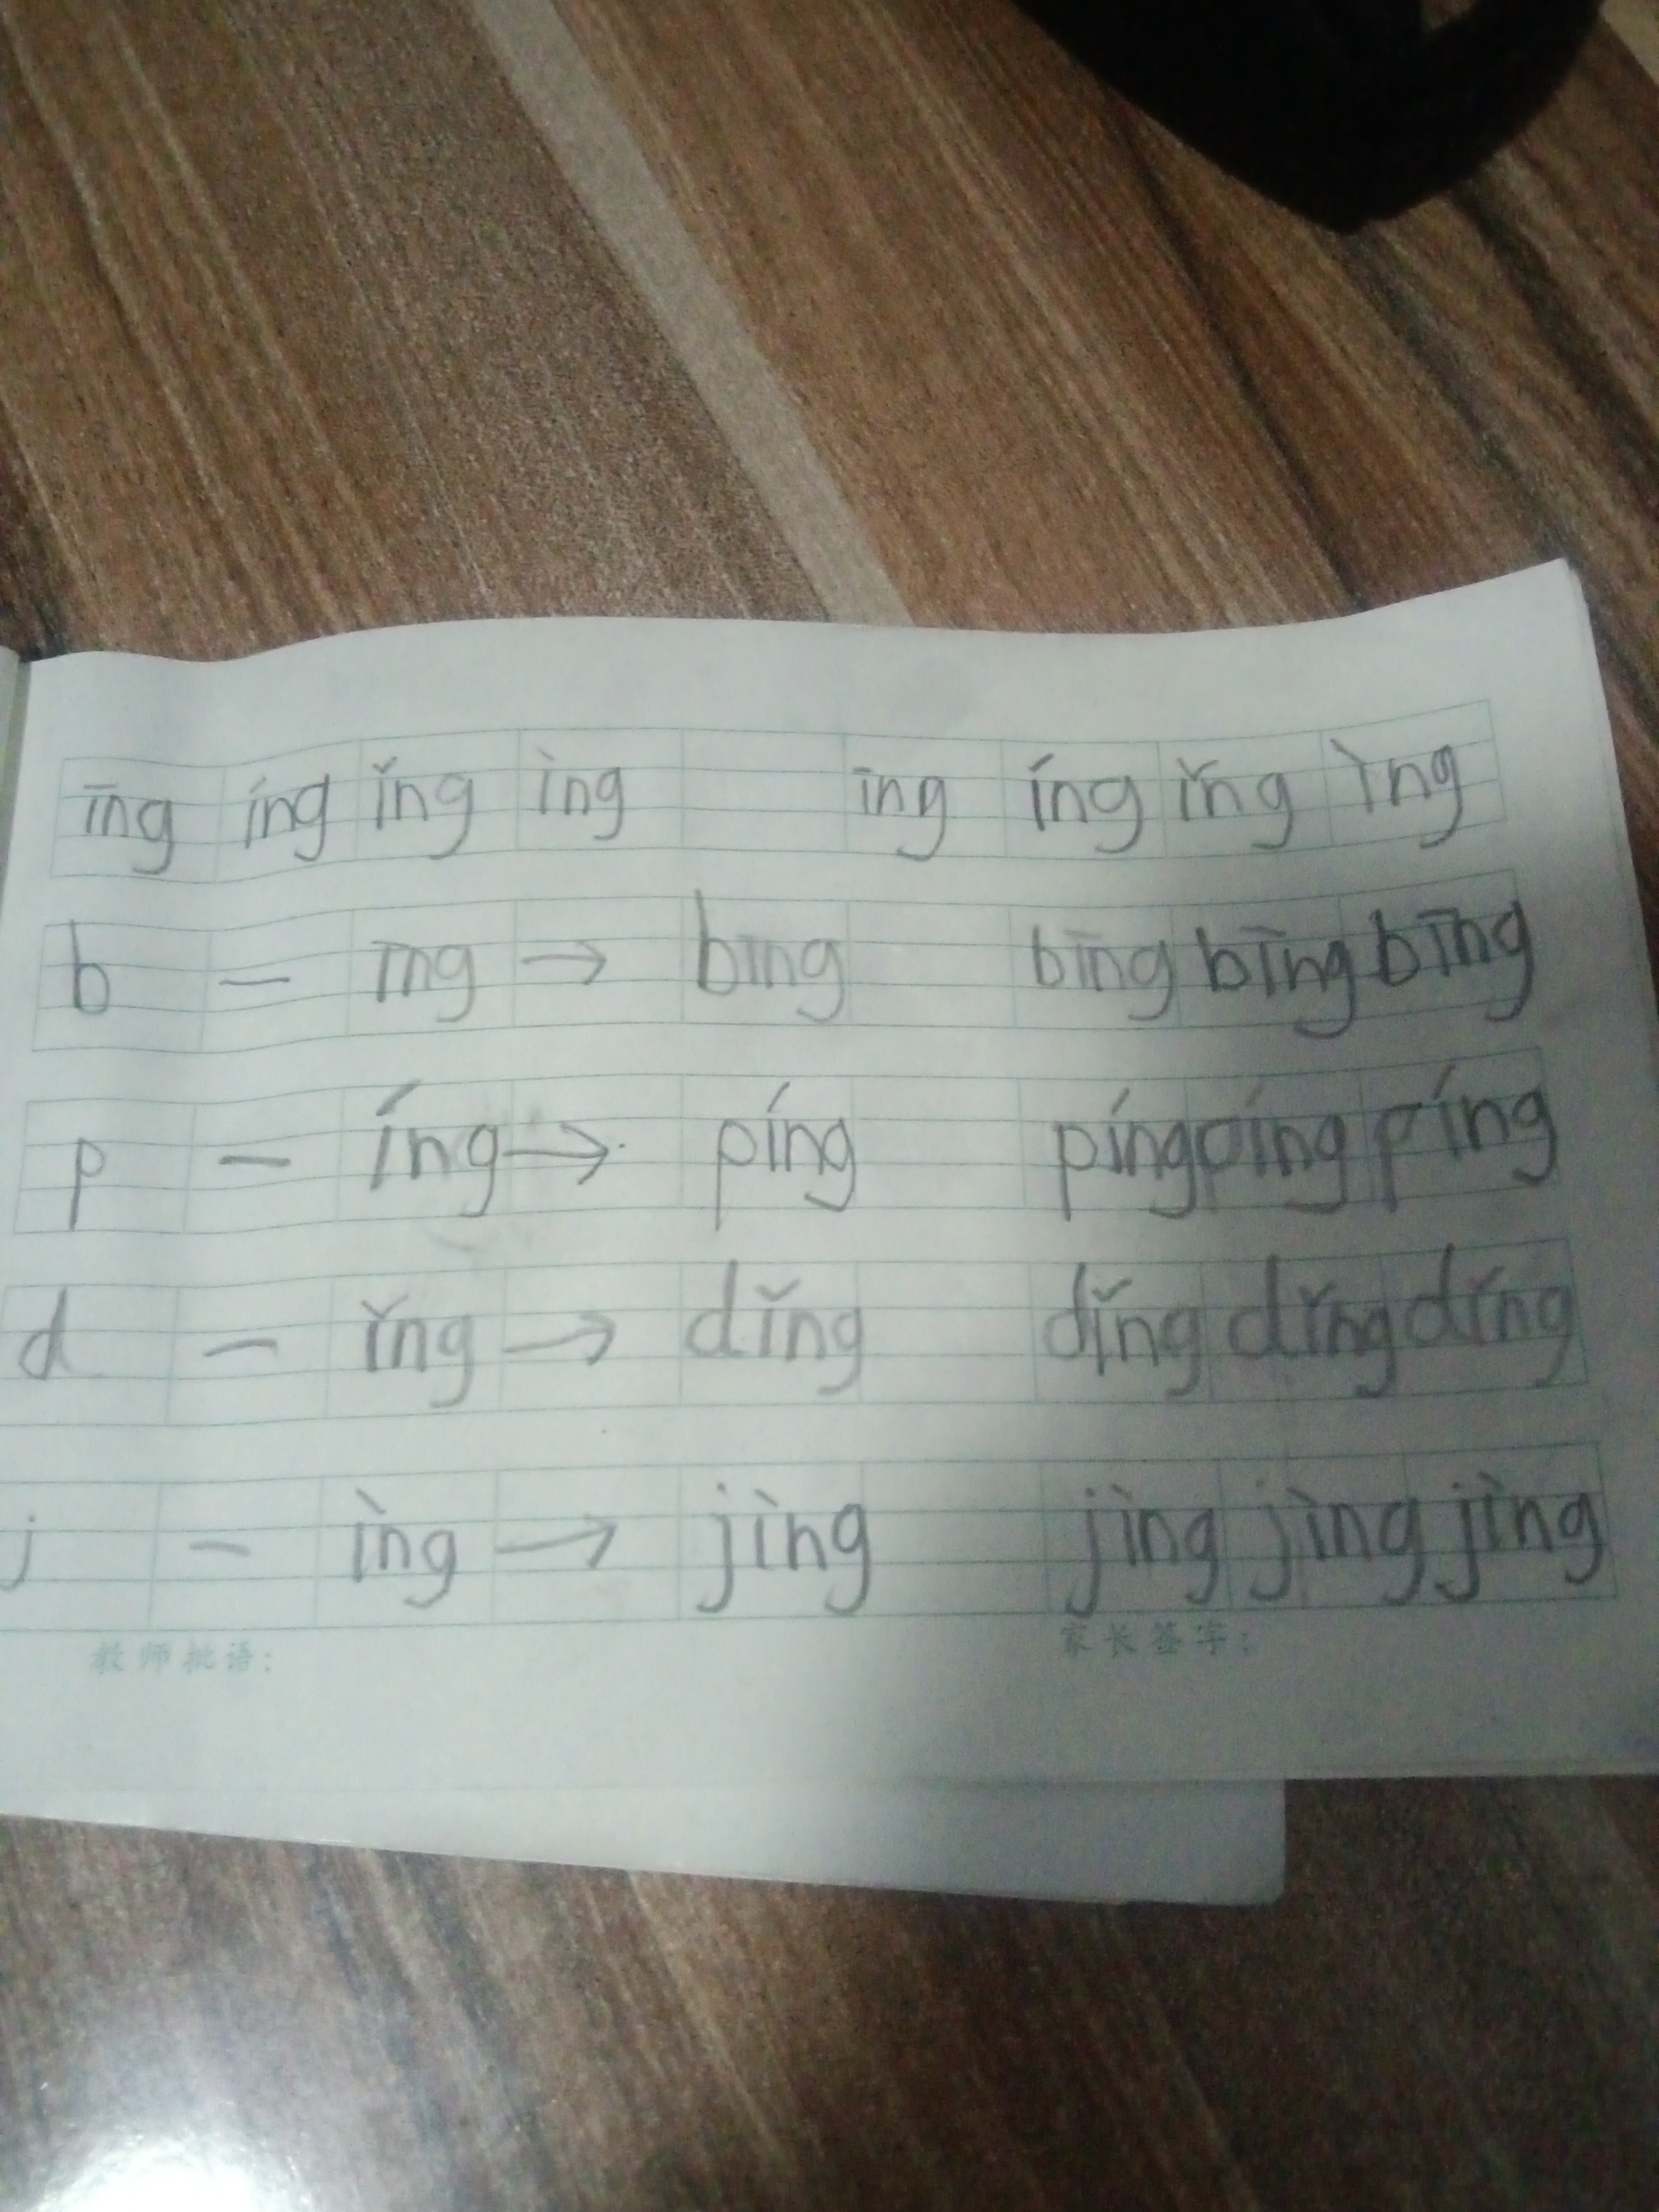 īng íng ǐng ìng īng íng ǐng ìng
b — īng → bīng bīng bīng bīng
p — íng → píng píng píng píng
d — ǐng → dǐng dǐng dǐng dǐng
j — ìng → jìng jìng jìng jìng
教师批语: 家长签字: